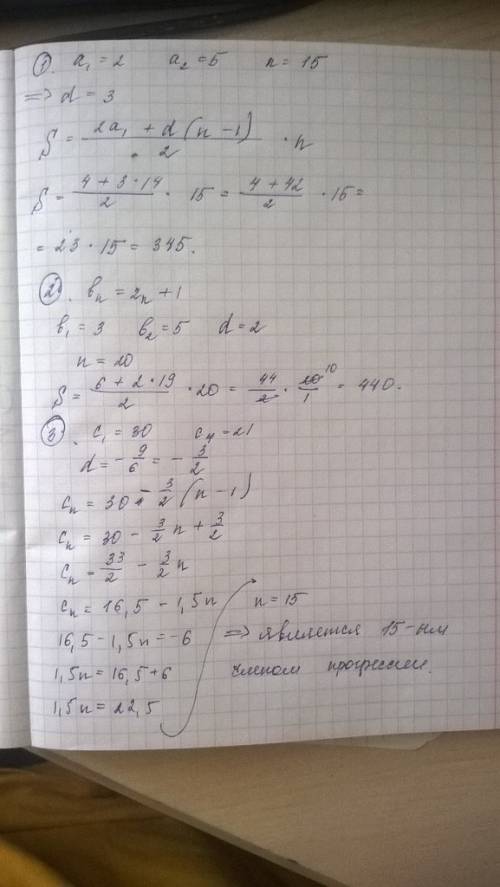 ① . a₁ = 2 a₂ = 5 n = 15
=> d = 3
S = (2a₁ + d(n - 1))/2 · n
S = (4 + 3·14)/2 · 15 = (4 + 42)/2 · 15 =
= 23 · 15 = 345.
② . bₙ = 2ₙ + 1
b₁ = 3 b₂ = 5 d = 2
n = 20
S = (6 + 2·19)/2 · 20 = 44/2 · 20/1 10 = 440.
③ . c₁ = 30 c₄ = 21
d = - 9/6 = - 3/2
cₙ = 30 - 3/2 (n - 1)
cₙ = 30 - 3/2 n + 3/2
cₙ = 33/2 - 3/2 n
cₙ = 16,5 - 1,5n n = 15
16,5 - 1,5n = -6 => является 15-ым
1,5n = 16,5 + 6 членом прогрессии.
1,5n = 22,5